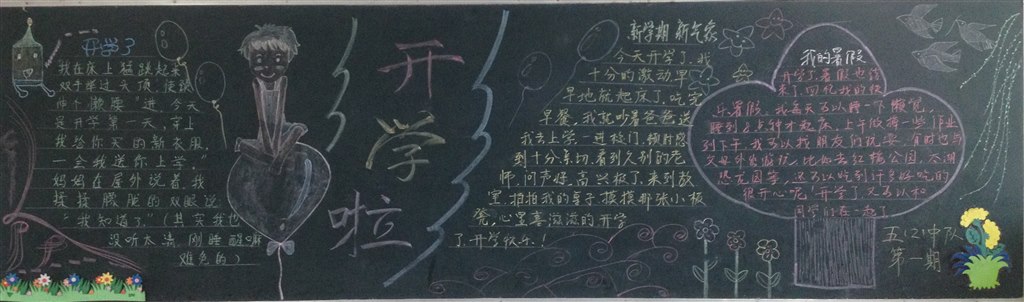 开学了
我在床上猛跳起来
双手举过天顶,使劲
伸个懒腰"进 今天
是开学第一天,穿上
我给你买的新衣服,
一会我送你上学,"
妈妈在屋外说着,我
揉揉朦胧的双眼说
"我知道了"(其实我也
没听太清,刚睡醒嘛
难免的)
开
学
啦
新学期 新气象
今天开学了,我
十分的激动早
早地就起床了,吃完
早餐,我就吵着爸爸送
我去上学一进校门,顿时感
到十分亲切,看到久别的老
师,问声好,高兴极了,来到教
室,拍拍我的桌子摸摸那张小板
凳,心里喜滋滋的开学
了,开学快乐!
我的暑假
开学了,暑假也结
束了,回忆我的快
乐暑假,我每天可以睡一下懒觉,
睡到8点钟才起床,上午做得一些作业
到下午,我可以找朋友们玩耍,有时也与
父母外出游玩,比如去红梅公园、
恐龙园等,还可以吃到许多好吃的
很开心呢!开学了又可以和
同学们在一起了
五(2)中队
第一期